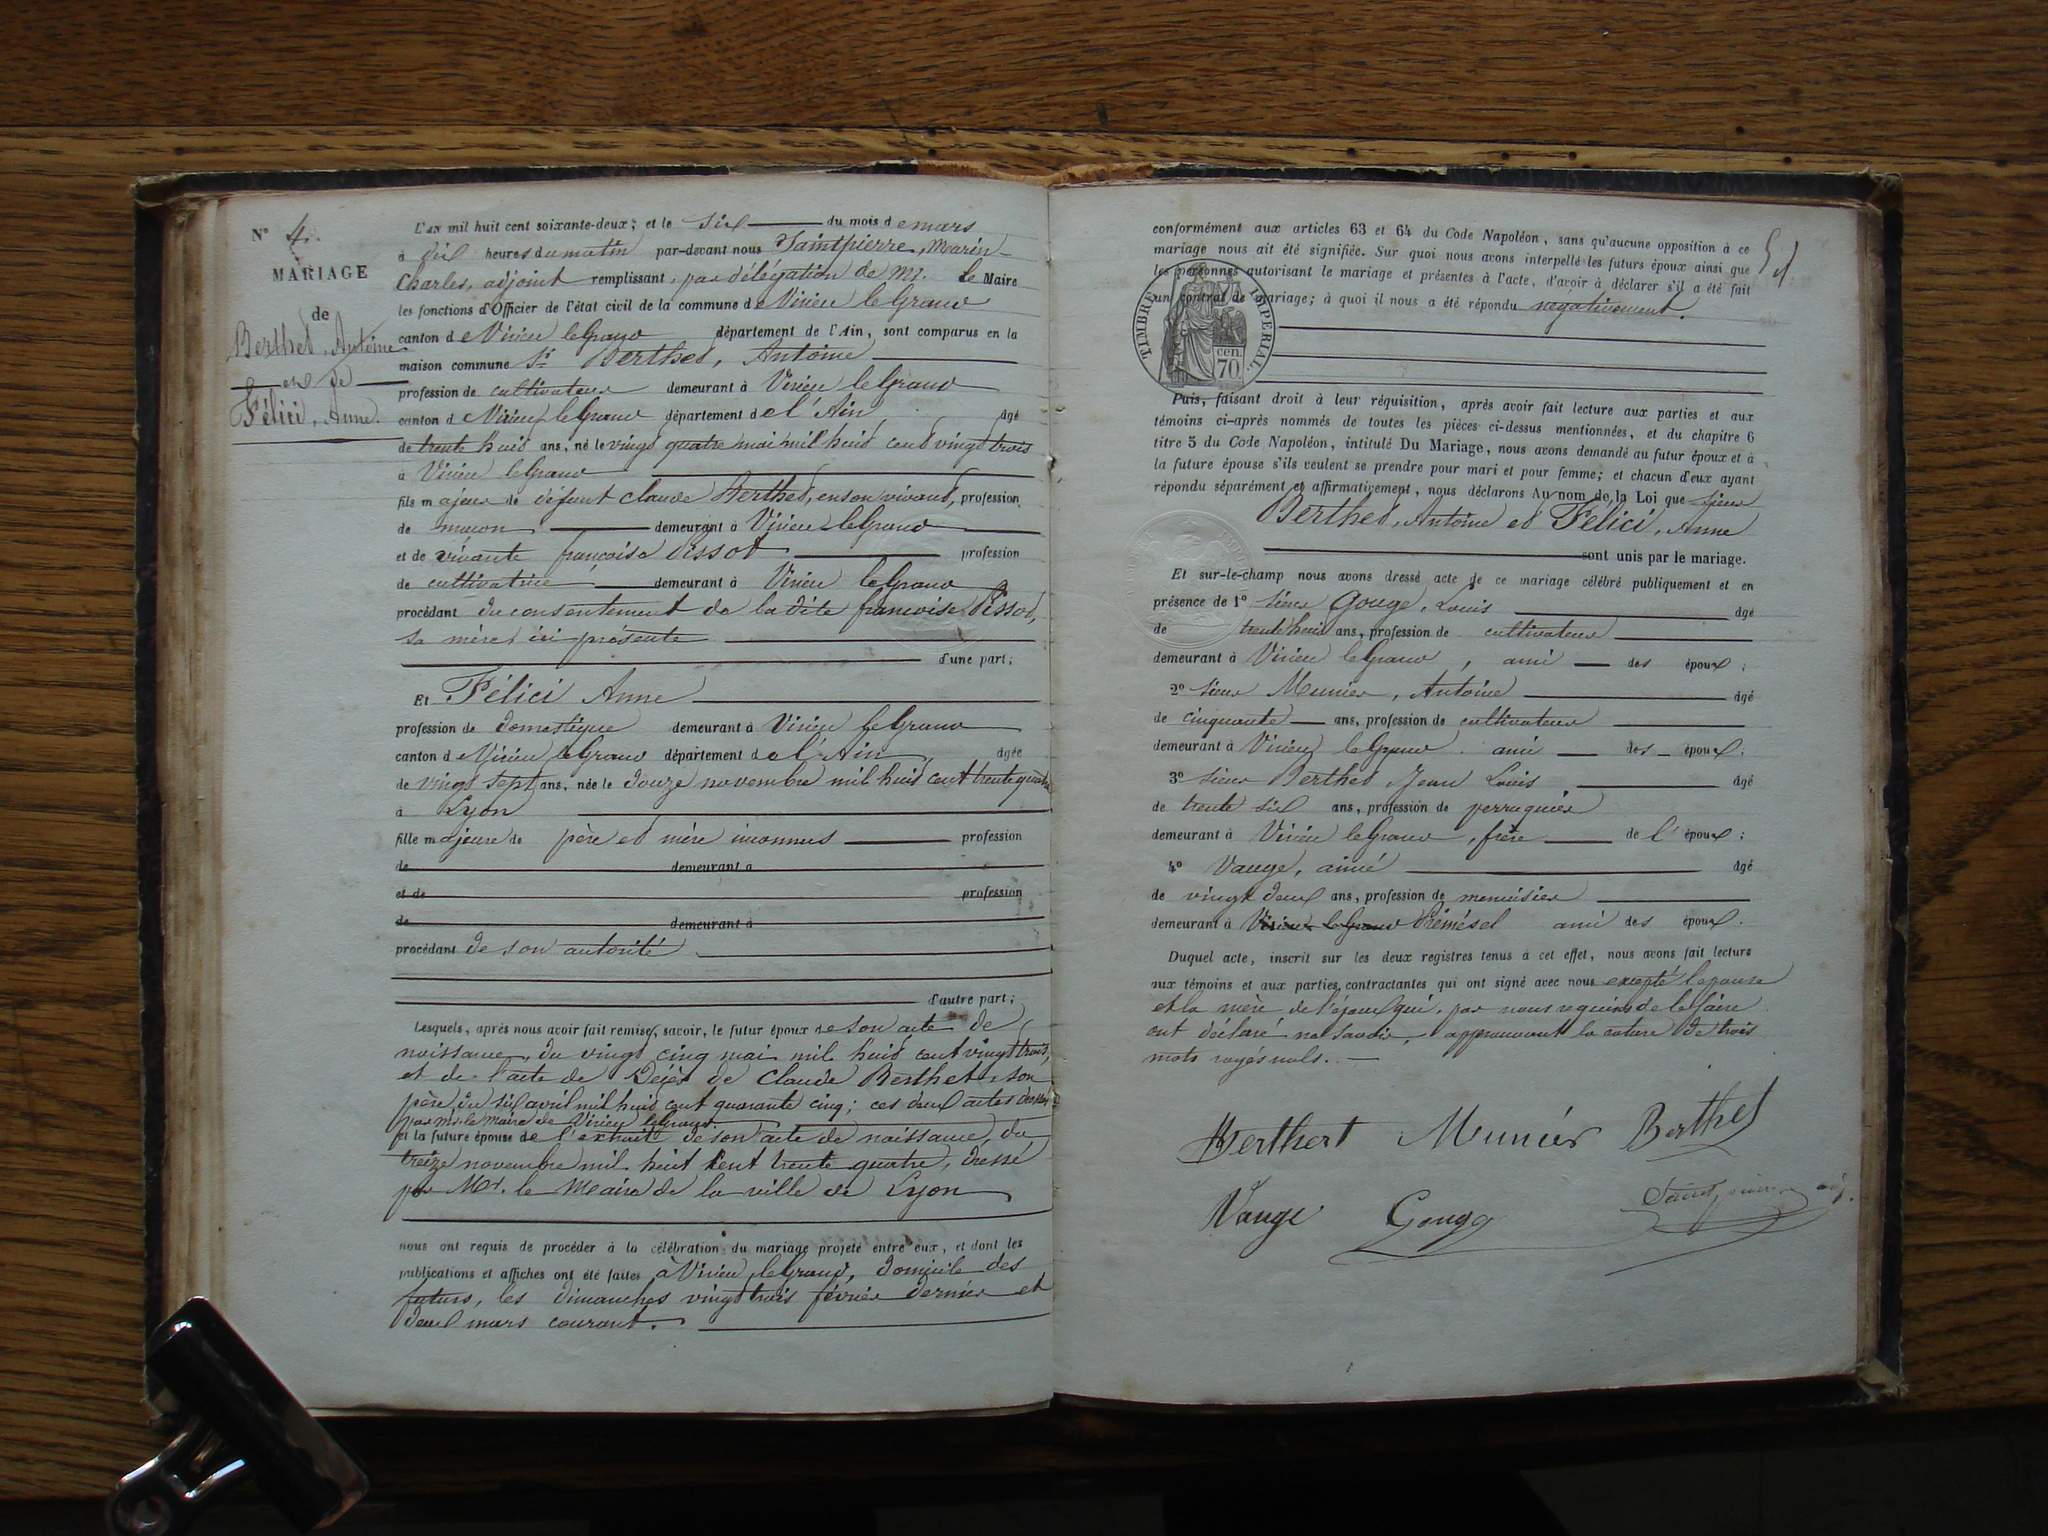 N° 4.
MARIAGE
de
Berthet, Antoine
et de
Félici, Anne.
L'an mil huit cent soixante-deux; et le six du mois de mars
à dix heures du matin par-devant nous Saintpierre, Marin-
Charles, adjoint remplissant, par délégation de Mr. le Maire
les fonctions d'Officier de l'état civil de la commune de Virieu le Grand
canton de Virieu le Grand département de l'Ain, sont comparus en la
maison commune Sr Berthet, Antoine
profession de cultivateur demeurant à Virieu le Grand
canton de Virieu le Grand département de l'Ain, âgé
de trente huit ans, né le vingt quatre mai mil huit cent vingt trois
à Virieu le Grand
fils majeur de défunt Claude Berthet, en son vivant, profession
de maçon demeurant à Virieu le Grand
et de vivante françoise Pissot profession
de cultivatrice demeurant à Virieu le Grand
procédant du consentement de la dite francoise Pissot,
sa mère, ici présente
d'une part;
Et Félici Anne
profession de domestique demeurant à Virieu le Grand
canton de Virieu le Grand département de l'Ain, âgée
de vingt sept ans, née le douze novembre mil huit cent trente quatre
à Lyon
fille majeure de père et mère inconnus profession
de demeurant à
et de profession
de demeurant à
procédant de son autorité
d'autre part;
Lesquels, après nous avoir fait remise, savoir, le futur époux de son acte de
naissance, du vingt cinq mai mil huit cent vingt trois,
et de l'acte de Décès de Claude Berthet, son
père, du six avril mil huit cent quarante cinq; ces deux actes dressés
par Mr. le Maire de Virieu le Grand.
et la future épouse de l'extrait de son acte de naissance, du
treize novembre mil huit cent trente quatre, dressé
par Mr. le Maire de la ville de Lyon
nous ont requis de procéder à la célébration du mariage projeté entre eux, et dont les
publications et affiches ont été faites à Virieu le Grand, domicile des
futurs, les dimanches vingt trois février dernier et
deux mars courant.
conformément aux articles 63 et 64 du Code Napoléon, sans qu'aucune opposition à ce
mariage nous ait été signifiée. Sur quoi nous avons interpellé les futurs époux ainsi que
les personnes autorisant le mariage et présentes à l'acte, d'avoir à déclarer s'il a été fait
un contrat de mariage; à quoi il nous a été répondu négativement.
TIMBRE IMPERIAL
cen.
70
Puis, faisant droit à leur réquisition, après avoir fait lecture aux parties et aux
témoins ci-après nommés de toutes les pièces ci-dessus mentionnées, et du chapitre 6
titre 5 du Code Napoléon, intitulé Du Mariage, nous avons demandé au futur époux et à
la future épouse s'ils veulent se prendre pour mari et pour femme; et chacun d'eux ayant
répondu séparément et affirmativement, nous déclarons Au nom de la Loi que sieur
Berthet, Antoine et Félici, Anne
sont unis par le mariage.
Et sur-le-champ nous avons dressé acte de ce mariage célébré publiquement et en
présence de 1° sieur Gouge, Louis âgé
de trente huit ans, profession de cultivateur
demeurant à Virieu le Grand, ami des époux;
2° sieur Meunier, Antoine âgé
de cinquante ans, profession de cultivateur
demeurant à Virieu le Grand ami des époux;
3° sieur Berthet Jean Louis âgé
de trente six ans, profession de perruquier
demeurant à Virieu le Grand, frère de l'époux;
4° Vauge, aimé âgé
de vingt deux ans, profession de menuisier
demeurant à Virieu le Grand ami des époux.
Duquel acte, inscrit sur les deux registres tenus à cet effet, nous avons fait lecture
aux témoins et aux parties contractantes qui ont signé avec nous excepté l'épouse
et la mère de l'époux qui, par nous requises de le faire
ont déclaré ne savoir, approuvant la rature de trois
mots rayés nuls.
Berthert Munier Berthet
Vauge Gouge Saintpierre adj.